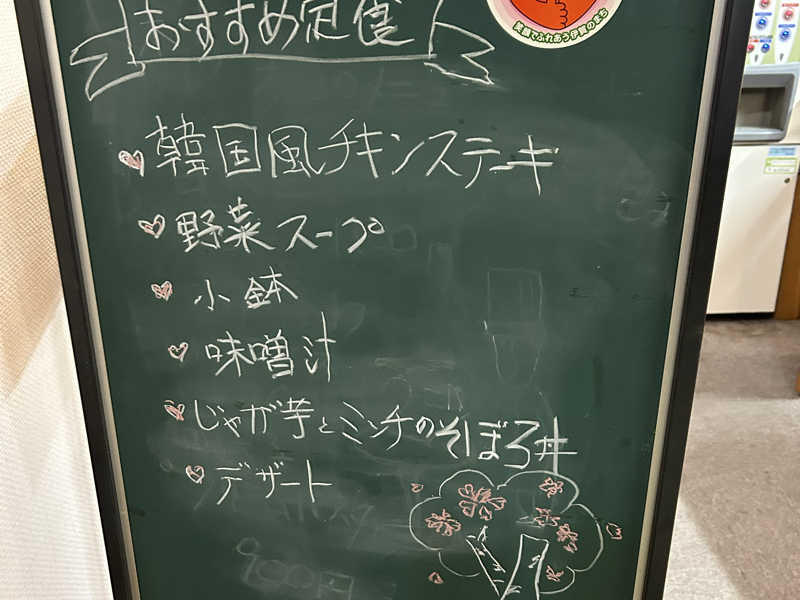 おすすめ定食
笑顔でふれあう伊賀のまち
韓国風チキンステーキ
野菜スープ
小鉢
味噌汁
じゃが芋とミンチのそぼろ丼
デザート
900円